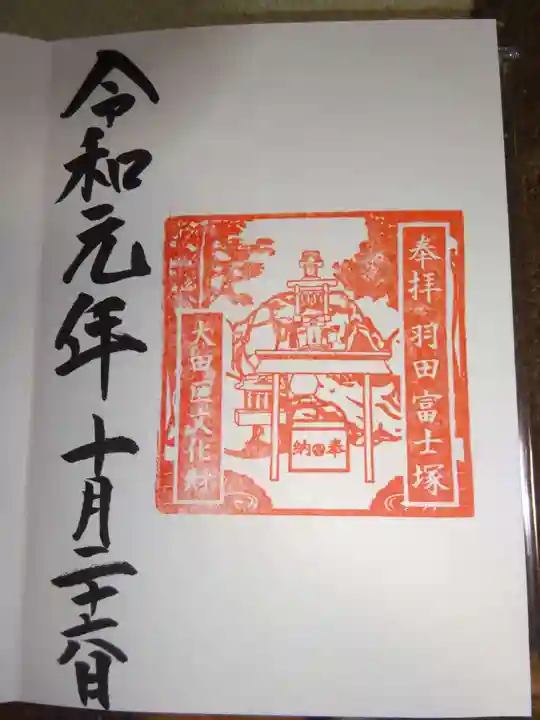 奉拝 羽田富士塚
奉納
大田区文化財
令和元年十月二十六日